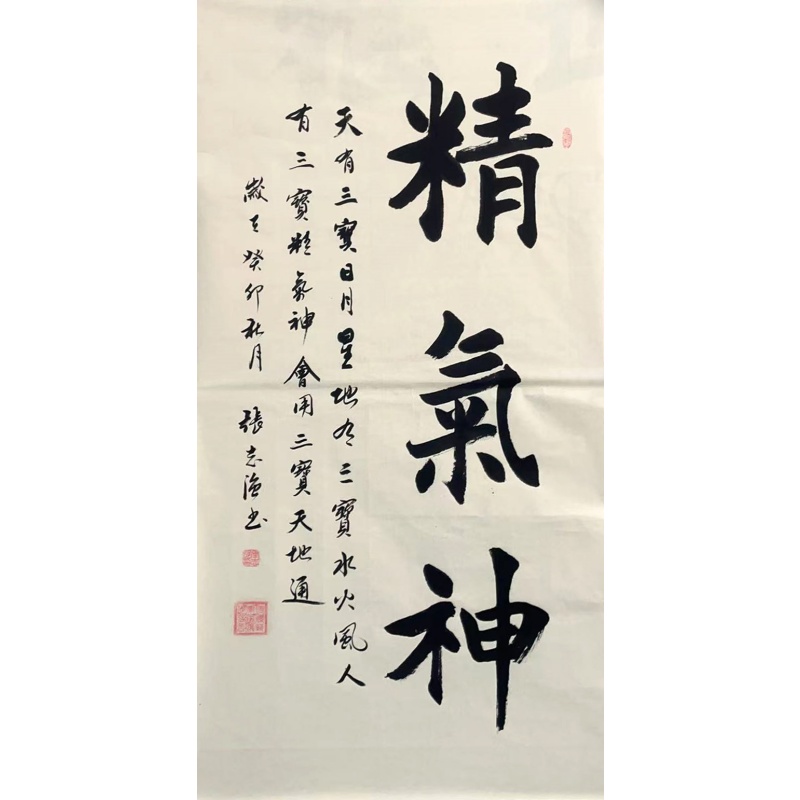 精氣神
天有三寶日月星地有三寶水火風人
有三寶精氣神會用三寶天地通
歲在癸卯秋月 張志強書